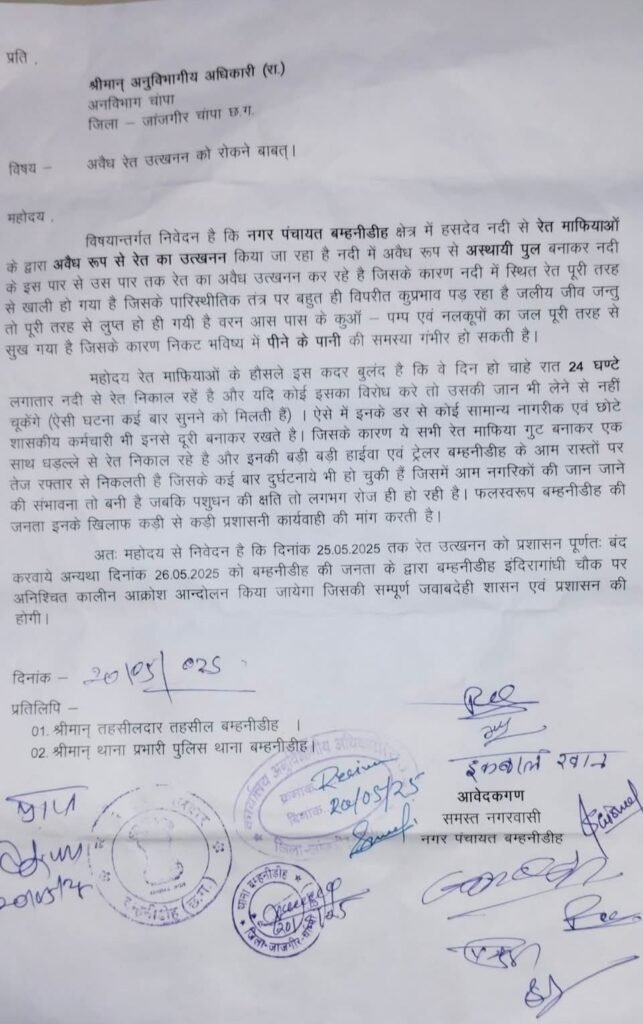 प्रति ,
श्रीमान् अनुविभागीय अधिकारी (रा.)
अनविभाग चांपा
जिला – जांजगीर चांपा छ.ग.
विषय – अवैध रेत उत्खनन को रोकने बाबत्।
महोदय ,
विषयान्तर्गत निवेदन है कि नगर पंचायत बम्हनीडीह क्षेत्र में हसदेव नदी से रेत माफियाओं
के द्वारा अवैध रूप से रेत का उत्खनन किया जा रहा है नदी में अवैध रूप से अस्थायी पुल बनाकर नदी
के इस पार से उस पार तक रेत का अवैध उत्खनन कर रहे है जिसके कारण नदी में स्थित रेत पूरी तरह
से खाली हो गया है जिसके पारिस्थीतिक तंत्र पर बहुत ही विपरीत कुप्रभाव पड़ रहा है जलीय जीव जन्तु
तो पूरी तरह से लुप्त हो ही गयी है वरन आस पास के कुओं – पम्प एवं नलकूपों का जल पूरी तरह से
सुख गया है जिसके कारण निकट भविष्य में पीने के पानी की समस्या गंभीर हो सकती है।
महोदय रेत माफियाओं के हौसले इस कदर बुलंद है कि वे दिन हो चाहे रात 24 घण्टे
लगातार नदी से रेत निकाल रहें है और यदि कोई इसका विरोध करे तो उसकी जान भी लेने से नहीं
चूकेंगे (ऐसी घटना कई बार सुनने को मिलती हैं) । ऐसे में इनके डर से कोई सामान्य नागरीक एवं छोटे
शासकीय कर्मचारी भी इनसे दूरी बनाकर रखते है। जिसके कारण ये सभी रेत माफिया गुट बनाकर एक
साथ धड़ल्ले से रेत निकाल रहे है और इनकी बड़ी बड़ी हाईवा एवं ट्रेलर बम्हनीडीह के आम रास्तों पर
तेज रफ्तार से निकलती है जिसके कई बार दुर्घटनाये भी हो चुकी हैं जिसमें आम नगरिकों की जान जाने
की संभावना तो बनी है जबकि पशुधन की क्षति तो लगभग रोज ही हो रही है। फलस्वरूप बम्हनीडीह की
जनता इनके खिलाफ कड़ी से कड़ी प्रशासनी कार्यवाही की मांग करती है।
अतः महोदय से निवेदन है कि दिनांक 25.05.2025 तक रेत उत्खनन को प्रशासन पूर्णतः बंद
करवाये अन्यथा दिनांक 26.05.2025 को बम्हनीडीह की जनता के द्वारा बम्हनीडीह इंदिरागांधी चौक पर
अनिश्चित कालीन आक्रोश आन्दोलन किया जायेगा जिसकी सम्पूर्ण जवाबदेही शासन एवं प्रशासन की
होगी।
दिनांक – 20/05/025
प्रतिलिपि –
01. श्रीमान् तहसीलदार तहसील बम्हनीडीह ।
02. श्रीमान् थाना प्रभारी पुलिस थाना बम्हनीडीह।
कार्यालय अनुविभागीय अधिकारी
क्रमांक
दिनांक 20/05/25
इकबाल खान
आवेदकगण
समस्त नगरवासी
नगर पंचायत बम्हनीडीह
बम्हनीडीह (छ.ग.)
थाना बम्हनीडीह
जिला-जांजगीर-चांपा